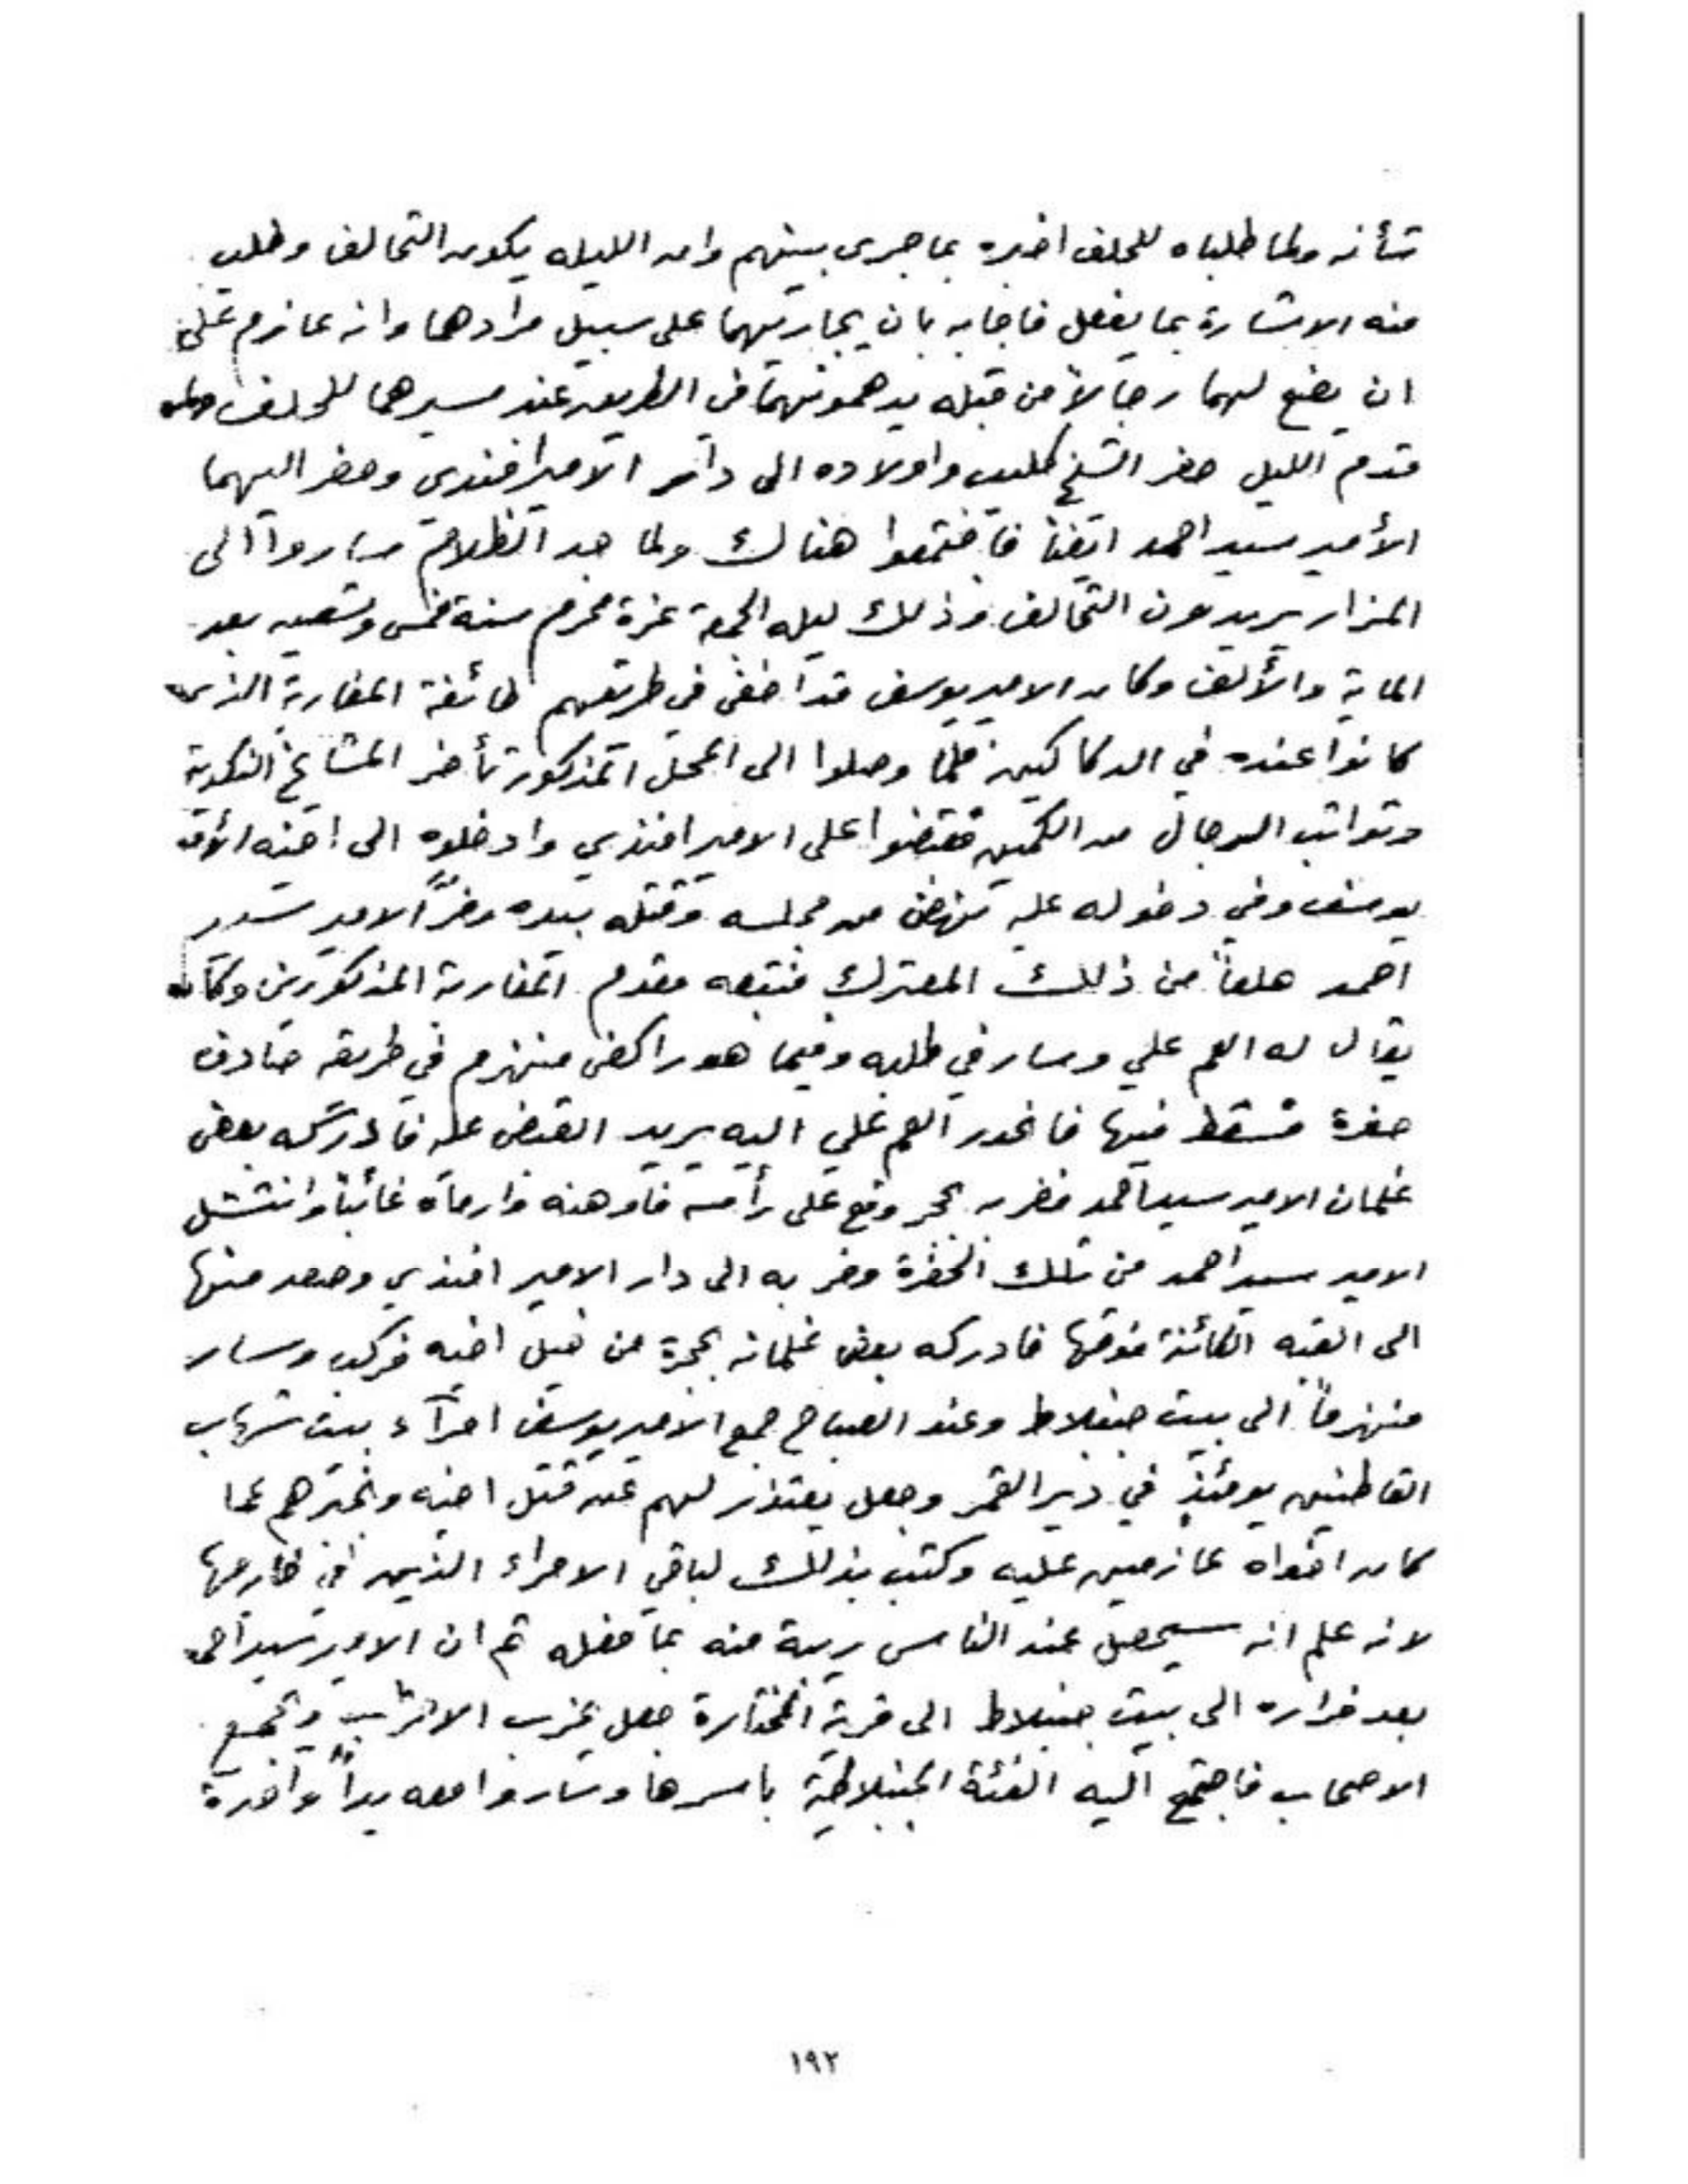 شأنه ولما طلباه للحلف اخبره بما جرى بينهم وان الليله يكون التحالف وطلب
منه الاشارة بما يفعل فاجابه بان يجاريهما على سبيل مرادهما وانه عازم على
ان يضع لهما رجالاً من قبله يدهمونهما في الطريق عند مسيرهما للحلف ولما
قدم الليل حضر الشيخ كليب واولاده الى دار الامير افندي وحضر اليهما
الأمير سيد احمد ايضاً فاجتمعوا هناك ولما جد الظلام ساروا الى
المزار يريدون التحالف وذلك ليله الجمعة غرة محرم سنة خمس وتسعين بعد
الماية والألف وكان الامير يوسف قد اخفى في طريقهم طائفة المغاربة الذين
كانوا عنده في الدكاكين فلما وصلوا الى المحل المذكور تأخر المشايخ النكدية
وتواثب الرجال من الكمين فقبضوا على الامير افندي وادخلوه الى اخيه الأمير
يوسف وفي دخوله عليه نهض من مجلسه وقتله بيده وفرّ الامير سيد
احمد هلعاً من ذلك المعترك فتبعه مقدم المغاربة المذكورين وكان
يقال له العم علي وسار في طلبه وفيما هو راكض منهزم في طريقه صادف
حفرة فسقط فيها فانحدر العم علي اليه يريد القبض عليه فادركه بعض
غلمان الامير سيد احمد فضربه بحجر وقع على رأسه فاوهنه وارماه غائباً وانتشل
الامير سيد احمد من تلك الحفرة وفر به الى دار الامير افندي وصعد منها
الى القبه الكائنة فوقها فادركه بعض غلمانه بحجرة من خيل اخيه فركب وسار
منهزماً الى بيت جنبلاط وعند الصباح جمع الامير يوسف امرآء بيت شهاب
القاطنين يومئذٍ في دير القمر وجعل يعتذر لهم عن قتل اخيه ويخبرهم بما
كان اخواه عازمين عليه وكتب بذلك لباقي الامراء الذين في خارجها
لانه علم انه سيحصل عند الناس ريبة منه بما فعله ثم ان الامير سيد احمد
بعد فراره الى بيت جنبلاط الى قرية المختارة جعل يحزب الاحزاب ويجمع
الاصحاب فاجتمع اليه الفئة الجنبلاطية باسرها وساروا معه يداً واحدة
١٩٢